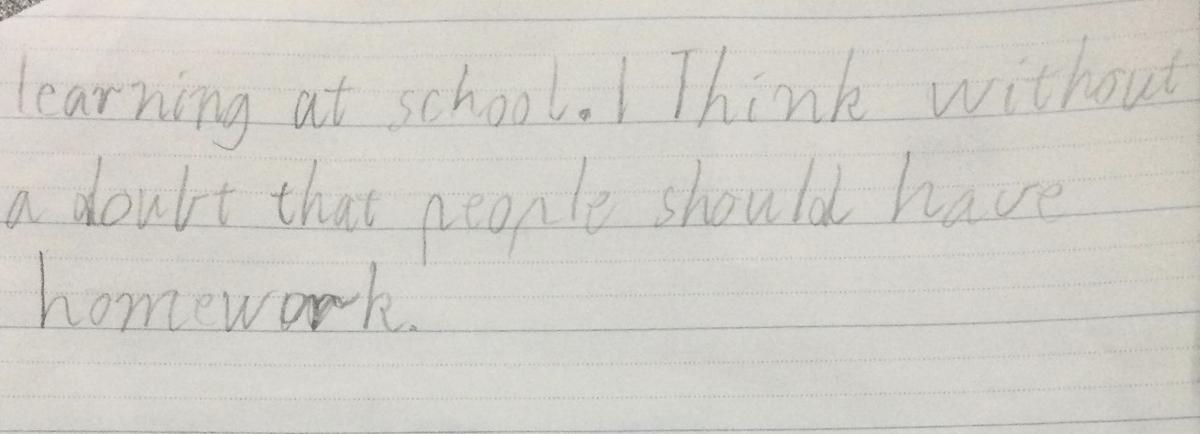 learning at school. I Think without
a doubt that people should have
homework.